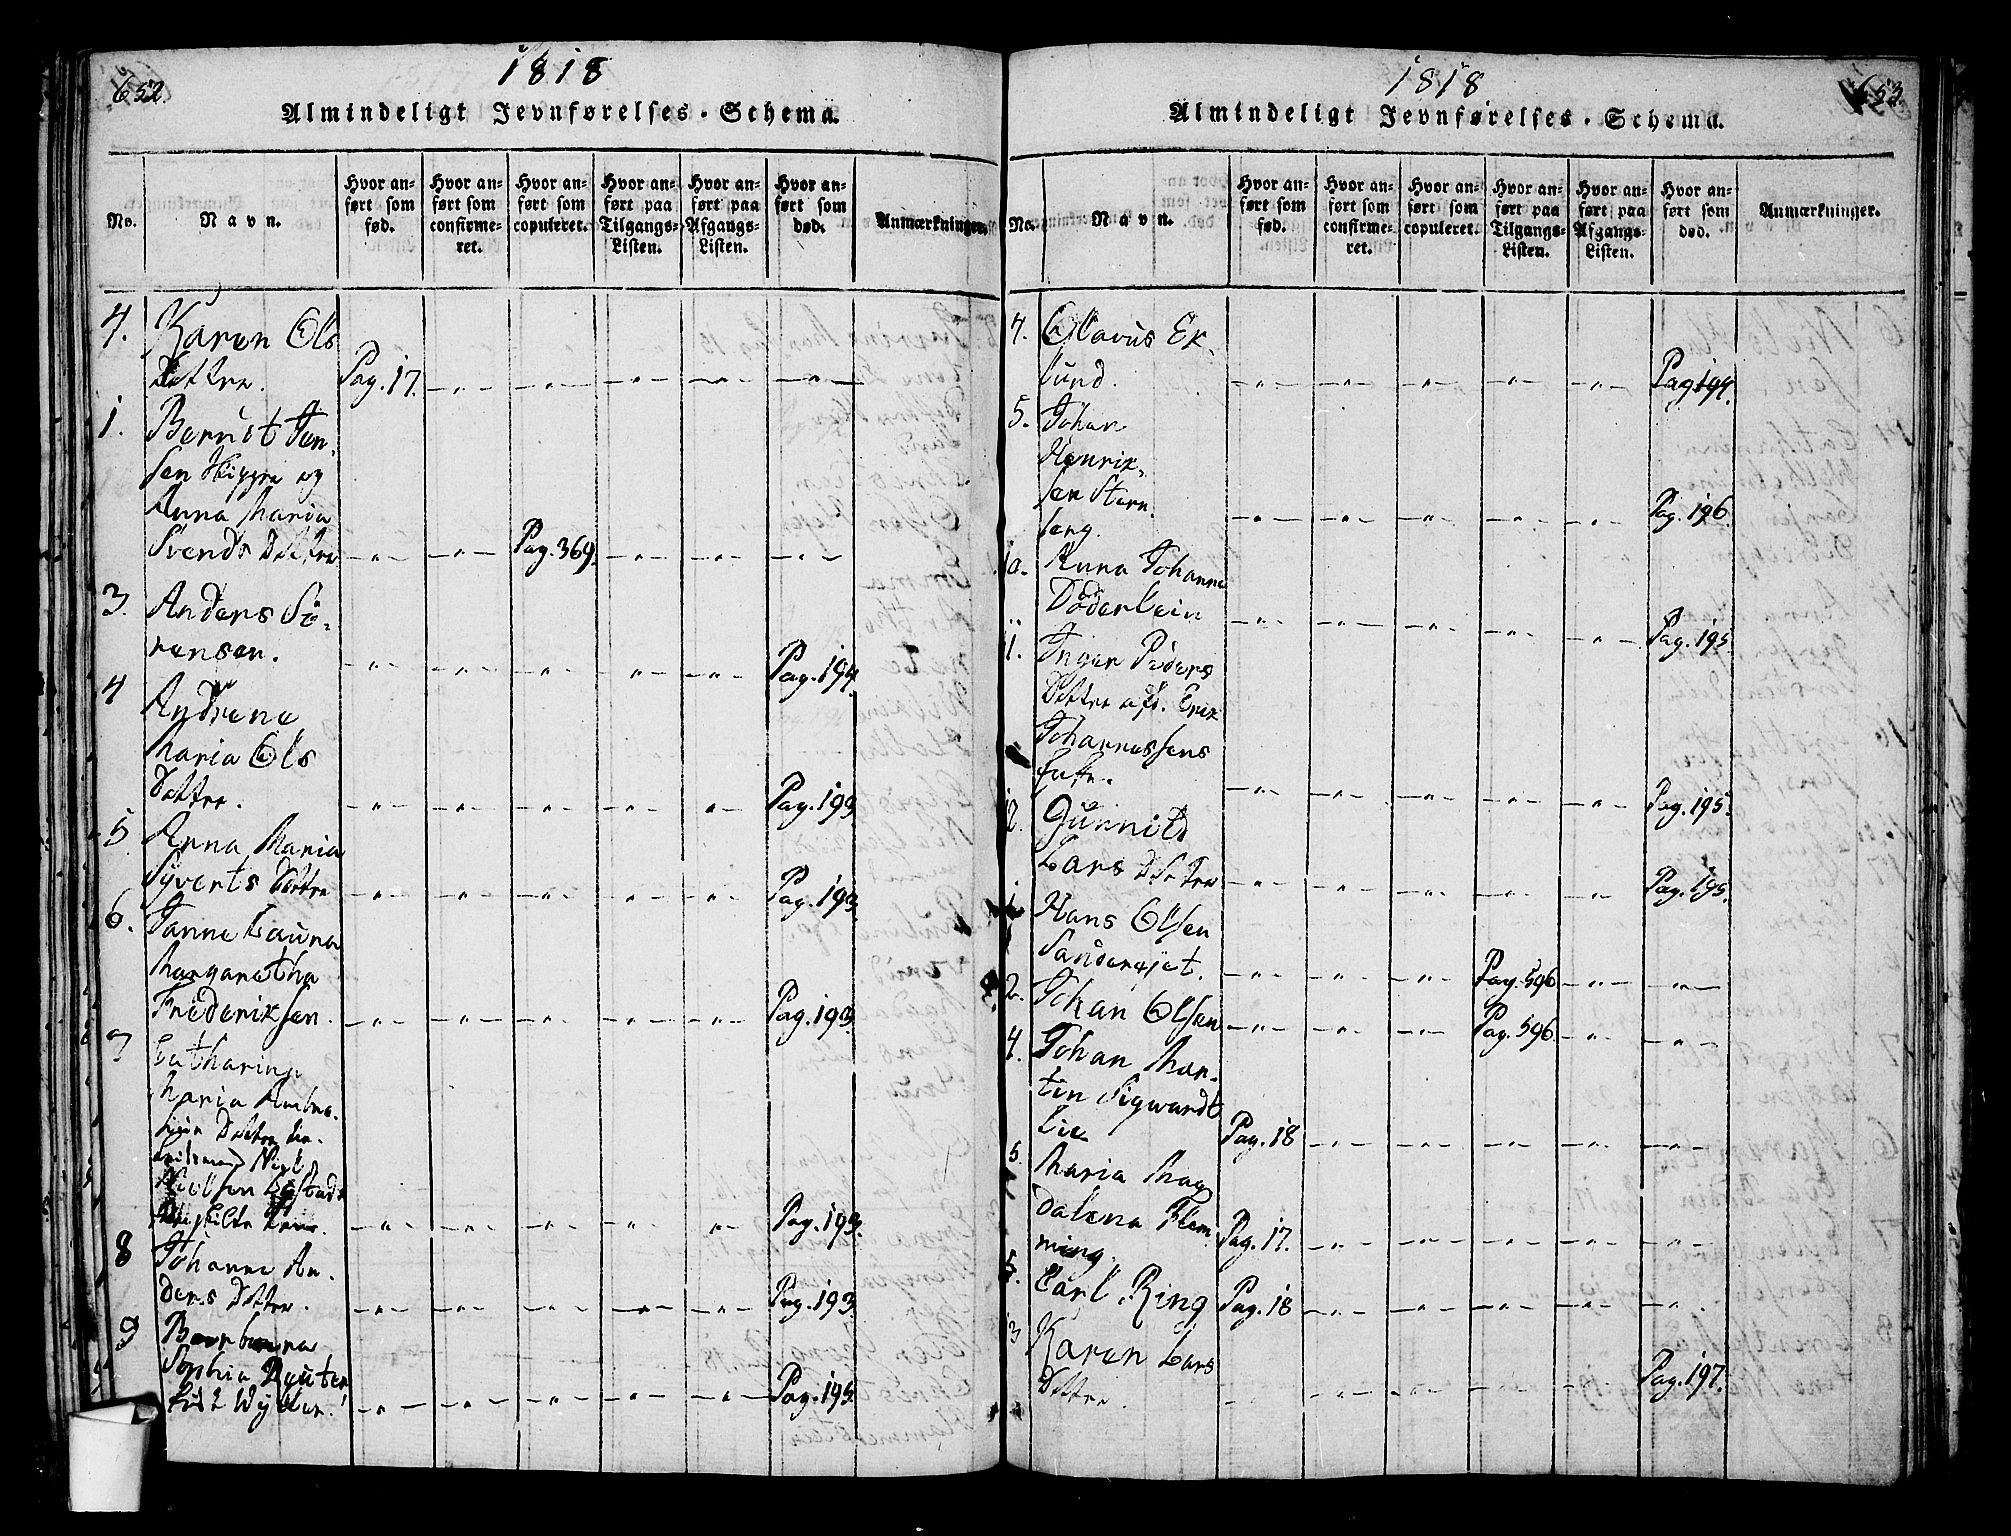 652.
1818
Almindeligt Jevnførelses-Schema.
No.
Navn.
Hvor anført som fød.
Hvor anført som confirmeret.
Hvor anført som copuleret.
Hvor anført paa Tilgangs-Listen.
Hvor anført paa Afgangs-Listen.
Hvor anført som død.
Anmærkninger.
4. Karen Ols
Dattre. Pag. 17.
1. Berndt Jen-
sen og
Anna Maria
Svends Dattre Pag. 369.
3. Anders Sö-
rensen. Pag. 194.
4 Andrene
Maria Ols
Dattre. Pag. 193
5. Anna Maria
Syverts Dattre Pag. 193.
6. Janne Laura
Margaretha
Frederiksen. Pag. 193
7 Catharina
Maria
Dattre
Niels
Nielsen
Pag. 193.
8 Johanne An-
ders Dattre. Pag. 193
9 Barbara
Sophia
Pag. 195.
653.
1818
Almindeligt Jevnførelses-Schema.
No.
Navn.
Hvor anført som fød.
Hvor anført som confirmeret.
Hvor anført som copuleret.
Hvor anført paa Tilgangs-Listen.
Hvor anført paa Afgangs-Listen.
Hvor anført som død.
Anmærkninger.
4. Olavus Ek-
lund. Pag. 194.
5. Johan
Henrik-
sen Stern-
berg. Pag. 196.
10. Anna Johanne
Döderlein Pag. 195
11. Inger Peders
Dattre afd. Erik
Johannessens
Enke. Pag. 195.
12. Gunnild
Lars Dattre Pag. 195.
1 Hans Olsen
Sanderöjet. Pag. 596
2. Johan Olsen Pag. 596.
4. Johan Mar-
tin Sigwardt
Lie Pag. 18
5. Maria Mag
dalena Flem-
ming. Pag. 17.
5. Carl Ring Pag. 18
3 Karen Lars
Dattre. Pag. 197.